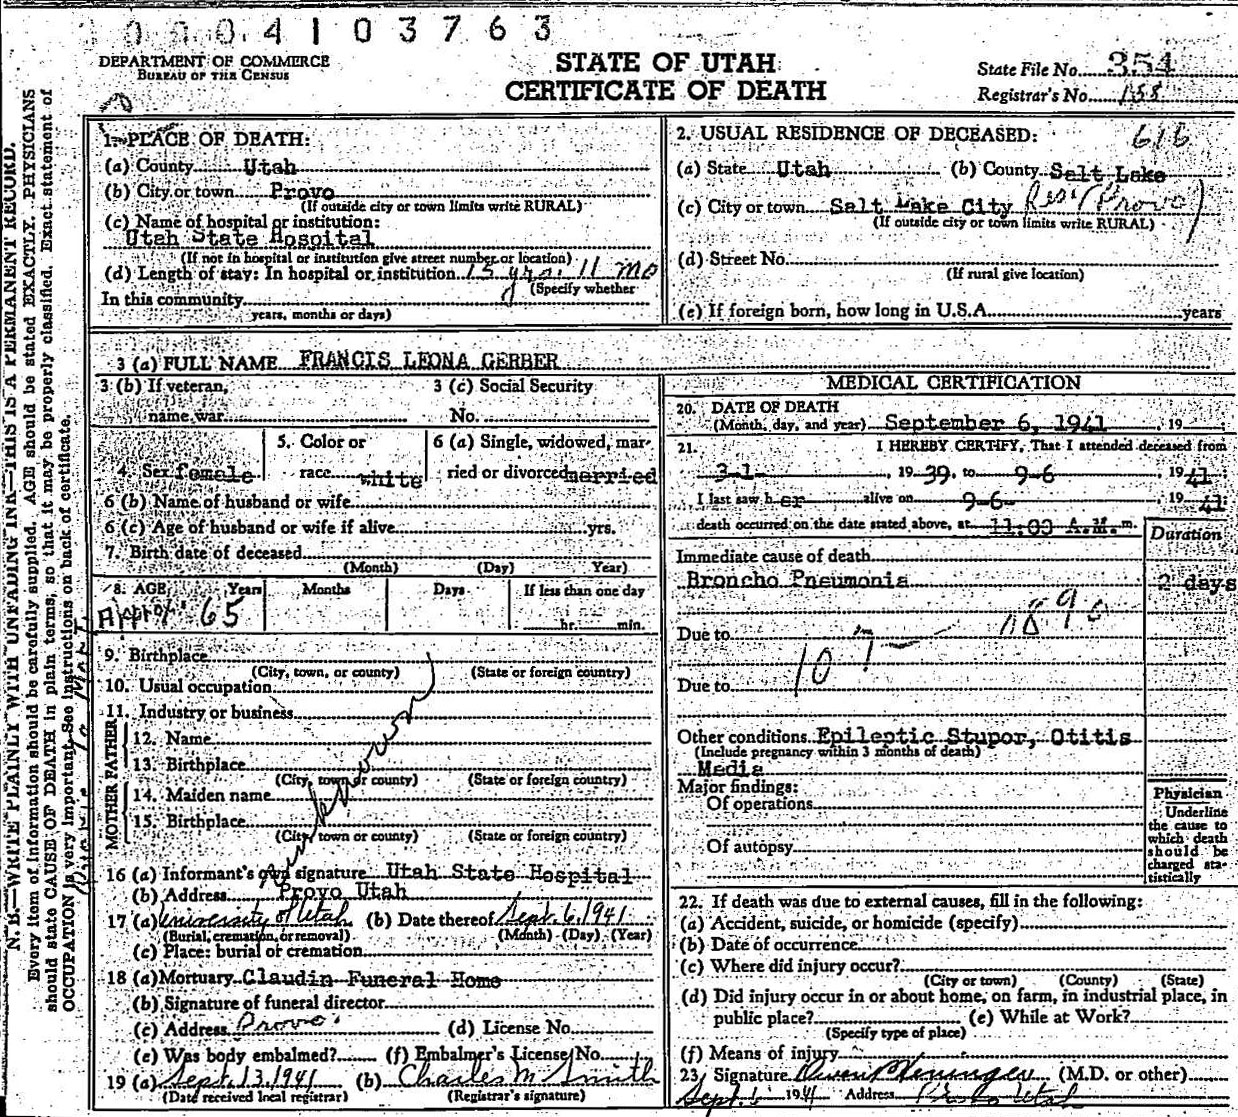 0004103763
DEPARTMENT OF COMMERCE
BUREAU OF THE CENSUS
STATE OF UTAH
CERTIFICATE OF DEATH
State File No. 354
Registrar's No. 188
N. B.—WRITE PLAINLY WITH UNFADING INK—THIS IS A PERMANENT RECORD.
Every item of information should be carefully supplied. AGE should be stated EXACTLY. PHYSICIANS
should state CAUSE OF DEATH in plain terms, so that it may be properly classified. Exact statement of
OCCUPATION is very important. See instructions on back of certificate.
1. PLACE OF DEATH:
(a) County Utah
(b) City or town Provo
(If outside city or town limits write RURAL)
(c) Name of hospital or institution:
Utah State Hospital
(If not in hospital or institution give street number or location)
(d) Length of stay: In hospital or institution 15 yrs. 11 mo
(Specify whether
In this community
years, months or days)
2. USUAL RESIDENCE OF DECEASED: 616
(a) State Utah (b) County Salt Lake
(c) City or town Salt Lake City Res. (Provo)
(If outside city or town limits write RURAL)
(d) Street No.
(If rural give location)
(e) If foreign born, how long in U.S.A. years
3 (a) FULL NAME FRANCIS LEONA GERBER
3 (b) If veteran,
name war
3 (c) Social Security
No.
4. Sex female
5. Color or
race white
6 (a) Single, widowed, mar-
ried or divorced married
6 (b) Name of husband or wife
6 (c) Age of husband or wife if alive yrs.
7. Birth date of deceased
(Month) (Day) Year)
8. AGE Years Months Days If less than one day
Approx 65 hr. min.
9. Birthplace
(City, town, or county) (State or foreign country)
10. Usual occupation
11. Industry or business
FATHER
12. Name
13. Birthplace
(City, town or county) (State or foreign country)
MOTHER
14. Maiden name
15. Birthplace
(City, town or county) (State or foreign country)
unknown
16 (a) Informant's own signature Utah State Hospital
(b) Address Provo Utah
17 (a) University of Utah (b) Date thereof Sept. 6, 1941
(Burial, cremation, or removal) (Month) (Day) (Year)
(c) Place: burial or cremation
18 (a) Mortuary Claudin Funeral Home
(b) Signature of funeral director
(c) Address Provo. (d) License No.
(e) Was body embalmed? (f) Embalmer's License No.
19 (a) Sept. 13, 1941 (b) Charles M Smith
(Date received local registrar) (Registrar's signature)
MEDICAL CERTIFICATION
20. DATE OF DEATH
(Month, day, and year) September 6, 1941 , 19
21. I HEREBY CERTIFY, That I attended deceased from
3-1- , 19 39. to 9-6 , 19 41.
I last saw her alive on 9-6- , 19 41
death occurred on the date stated above, at 11:00 A.M. m.
Duration
Immediate cause of death
Broncho Pneumonia 2 days
Due to 107- 1890
Due to
Other conditions Epileptic Stupor, Otitis
(Include pregnancy within 3 months of death)
Media
Major findings:
Of operations
Of autopsy
Physician
Underline
the cause to
which death
should be
charged sta-
tistically
22. If death was due to external causes, fill in the following:
(a) Accident, suicide, or homicide (specify)
(b) Date of occurrence
(c) Where did injury occur?
(City or town) (County) (State)
(d) Did injury occur in or about home, on farm, in industrial place, in
public place? (e) While at Work?
(Specify type of place)
(f) Means of injury
23. Signature (M.D. or other)
Sept. 6 1941 Address Provo Utah